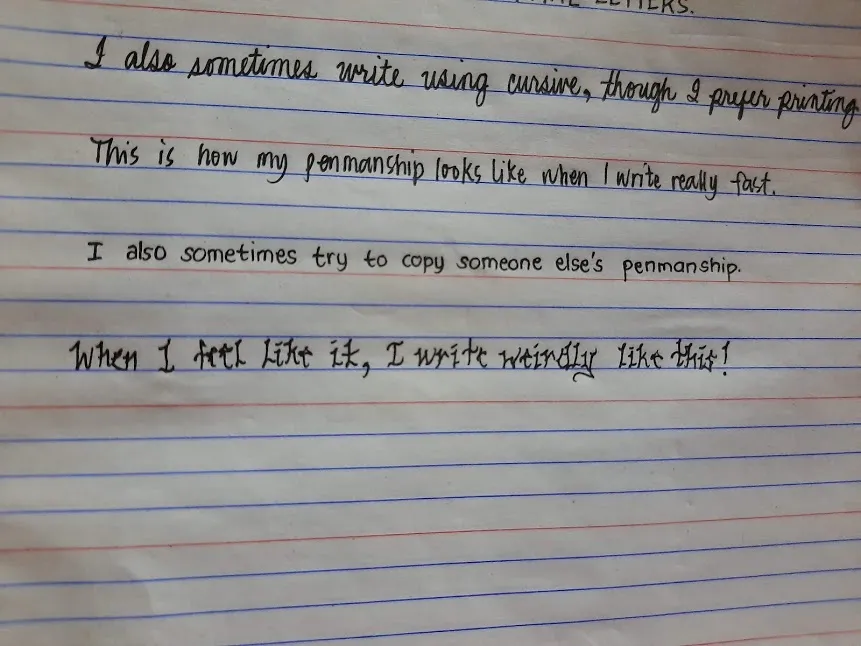 LETTERS.
I also sometimes write using cursive, though I prefer printing
This is how my penmanship looks like when I write really fast.
I also sometimes try to copy someone else's penmanship.
When I feel like it, I write weirdly like this!